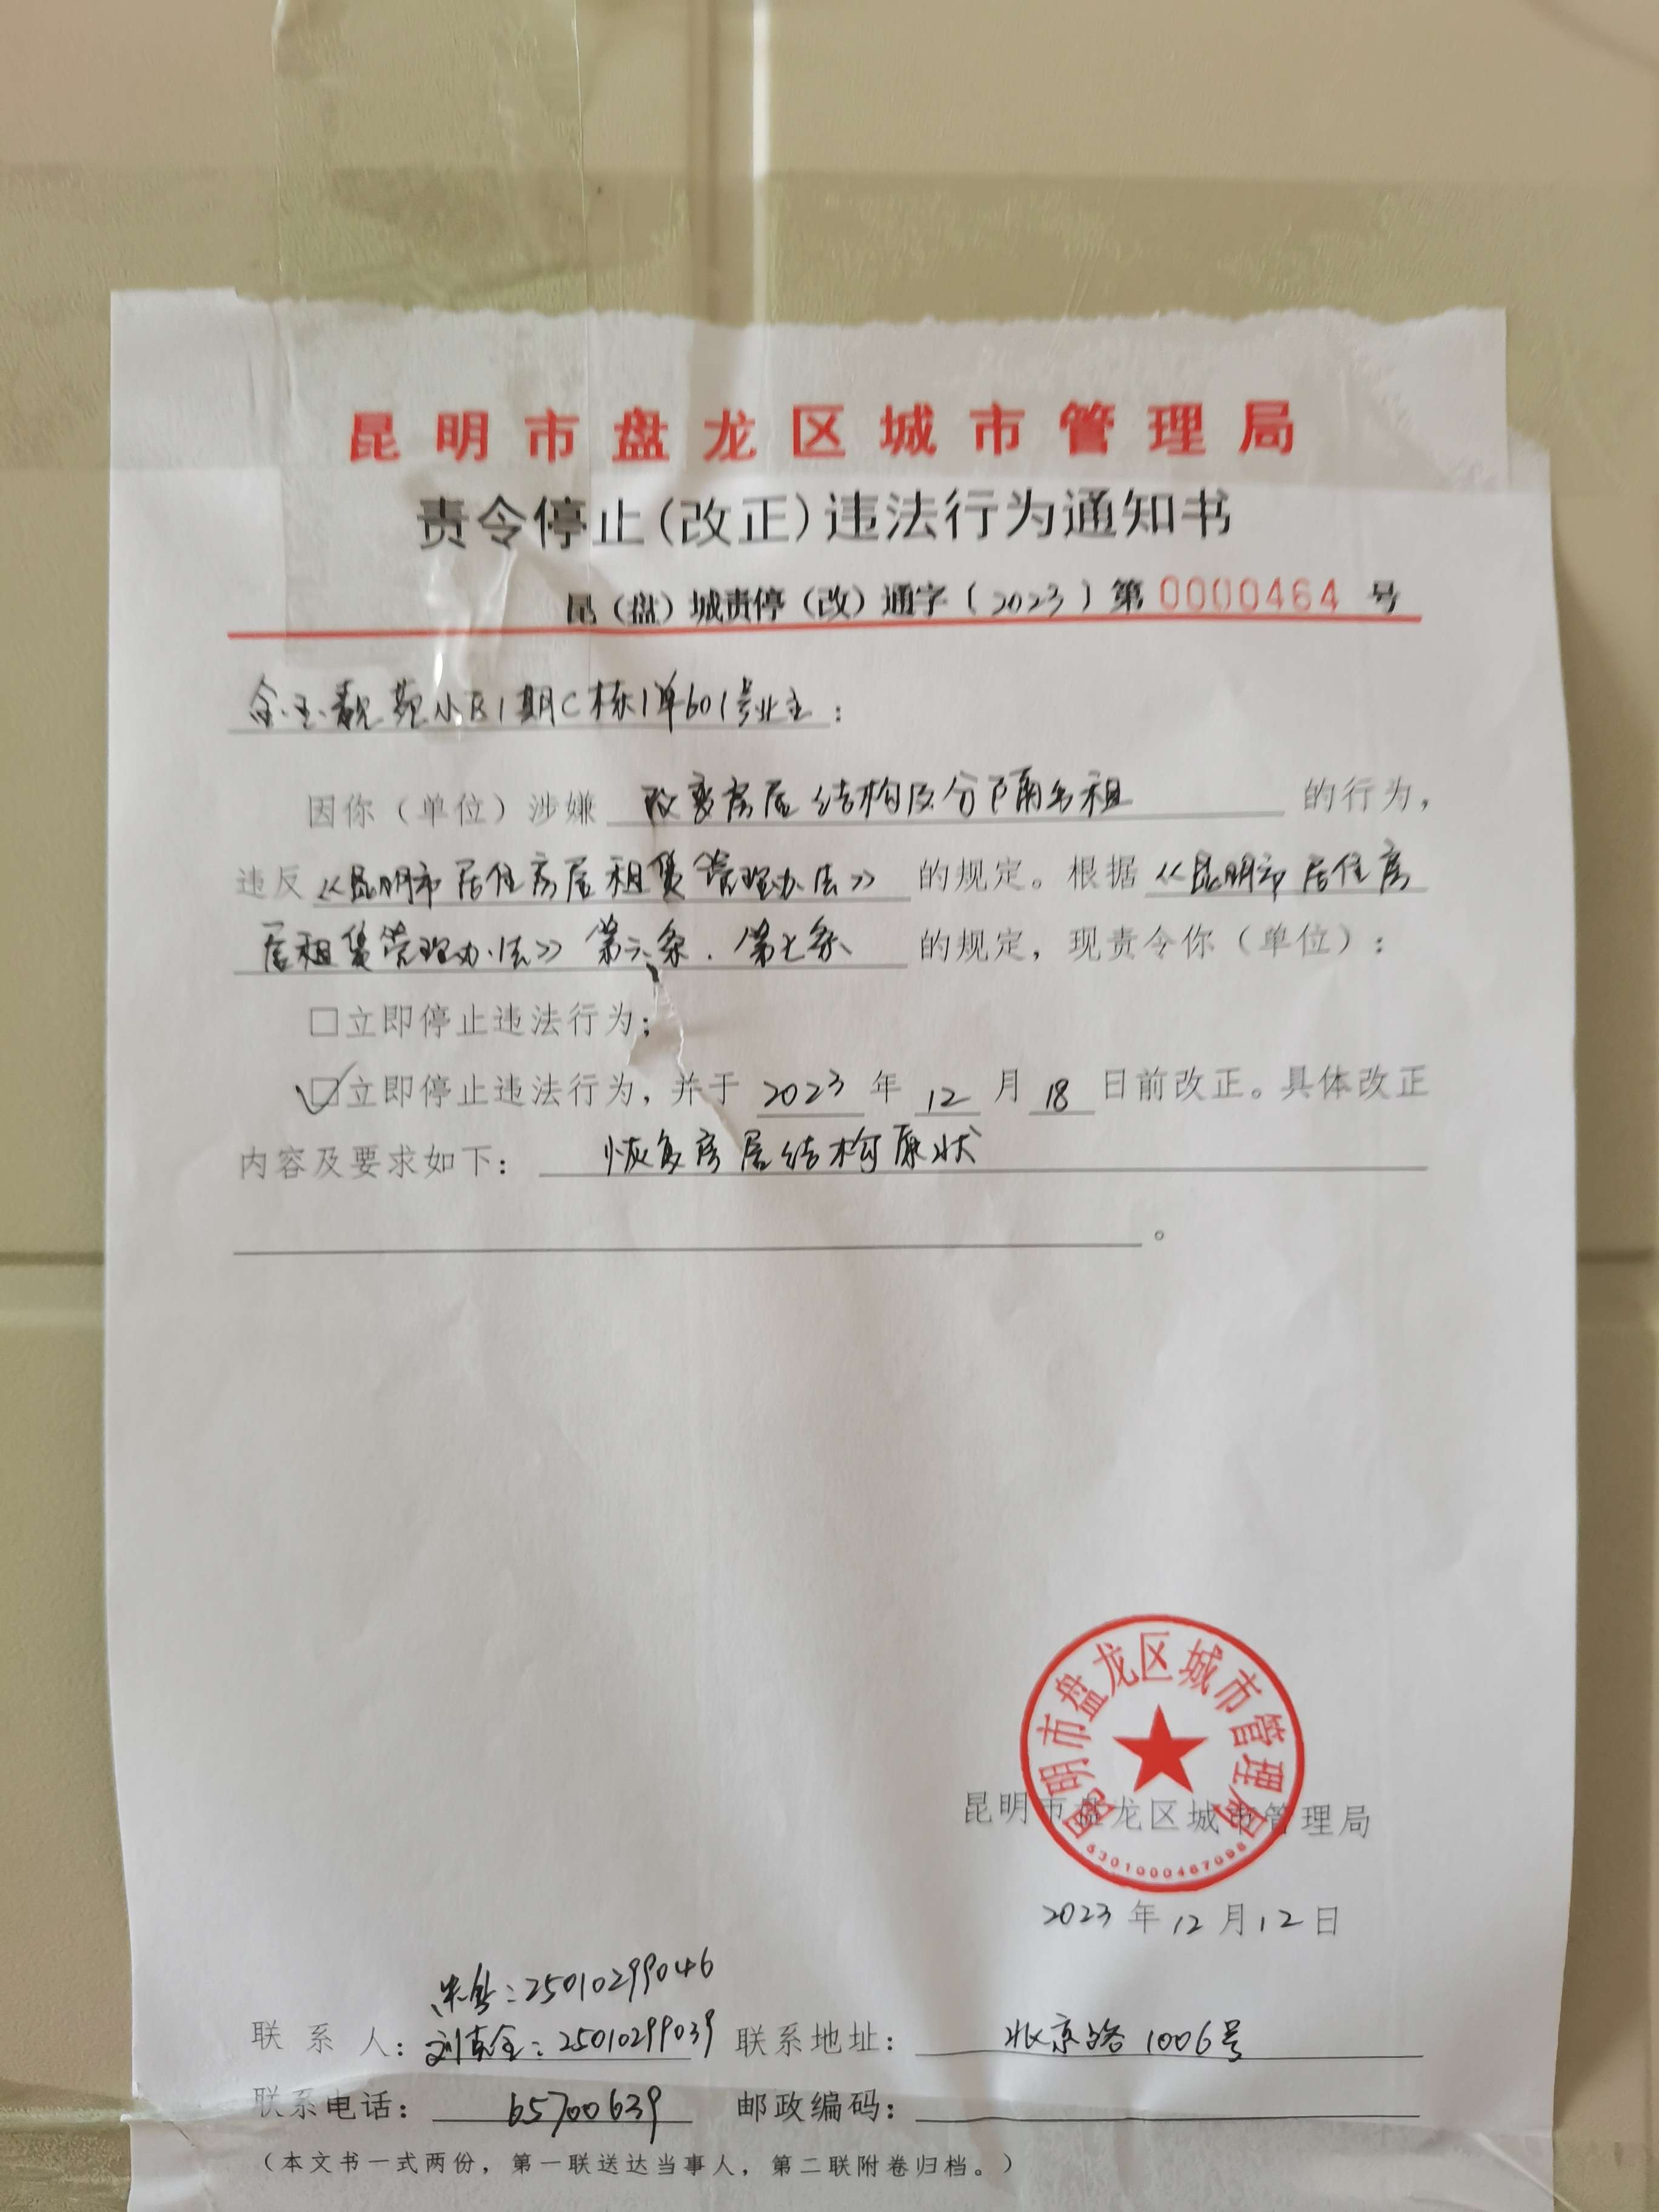 昆明市盘龙区城市管理局
责令停止(改正)违法行为通知书
昆(盘)城责停(改)通字〔2023〕第 0000464 号
金玉靓苑小区1期C栋1单601号业主：
因你(单位)涉嫌 改变房屋结构及分隔出租 的行为，
违反《昆明市居住房屋租赁管理办法》的规定。根据《昆明市居住房
屋租赁管理办法》第六条.第七条 的规定，现责令你(单位)：
□立即停止违法行为；
☑立即停止违法行为，并于 2023 年 12 月 18 日前改正。具体改正
内容及要求如下：恢复房屋结构原状
。
昆明市盘龙区城市管理局
5301000467098
昆明市盘龙区城市管理局
2023 年 12 月 12 日
：25010299046
联系人：刘 ：25010299039 联系地址：北京路1006号
联系电话：65700639 邮政编码：
(本文书一式两份，第一联送达当事人，第二联附卷归档。)